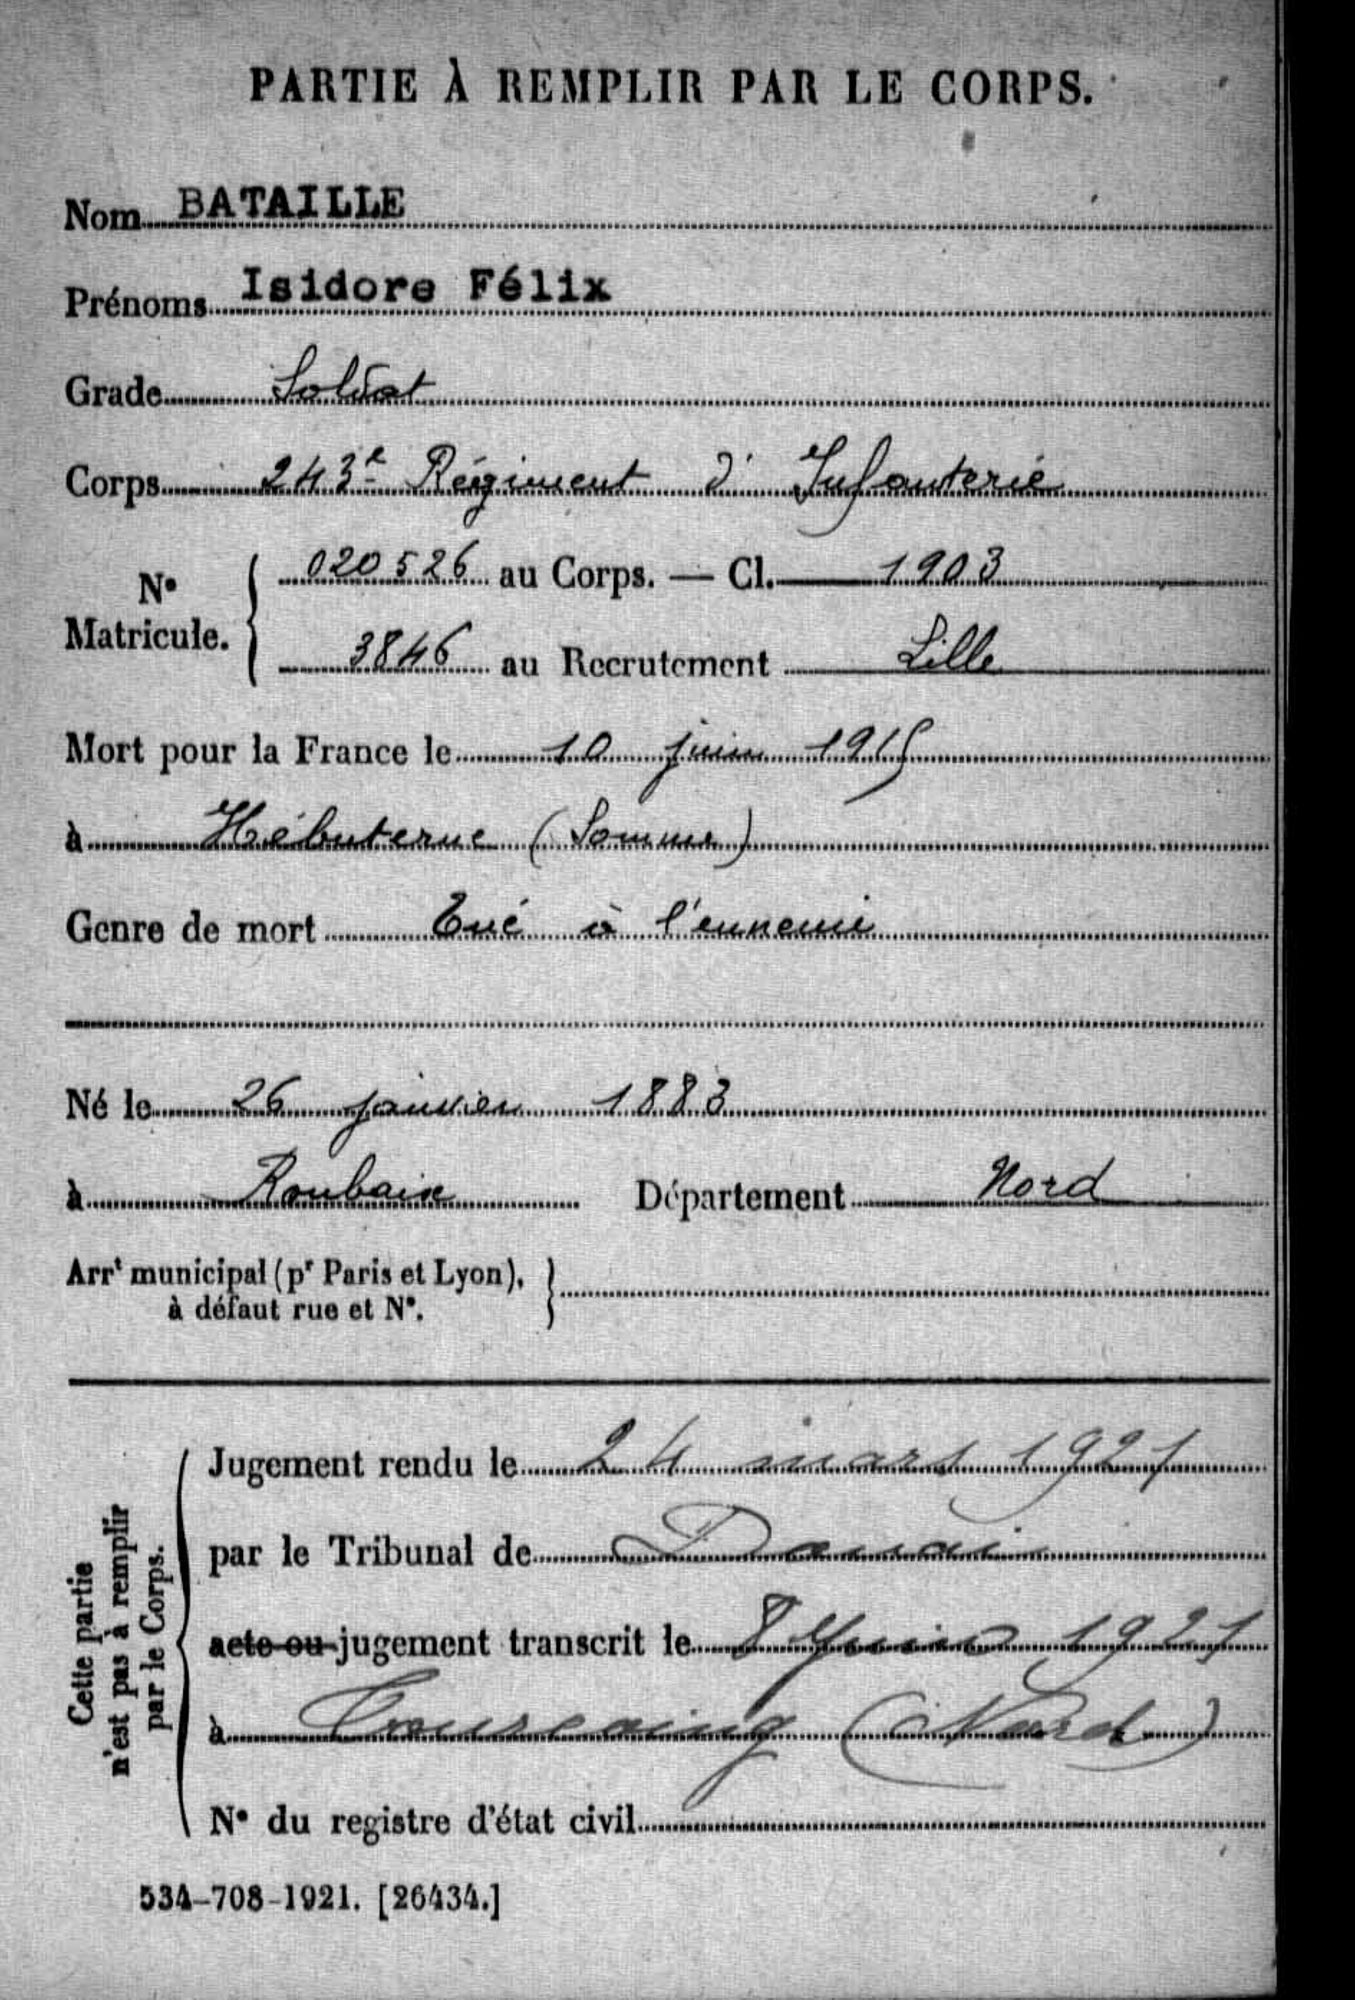 PARTIE À REMPLIR PAR LE CORPS.
Nom BATAILLE
Prénoms Isidore Félix
Grade Soldat
Corps 243e Régiment d'Infanterie
No Matricule. { 020526 au Corps. — Cl. 1903
3846 au Recrutement Lille
Mort pour la France le 10 juin 1915
à Hébuterne (Somme)
Genre de mort Tué à l'ennemi
Né le 26 janvier 1883
à Roubaix Département Nord
Arrt municipal (pr Paris et Lyon), }
à défaut rue et No.
Cette partie
n'est pas à remplir
par le Corps.
Jugement rendu le 24 mars 1921
par le Tribunal de Douai
acte ou jugement transcrit le 8 Juin 1921
à Tourcoing (Nord)
No du registre d'état civil
534-708-1921. [26434.]